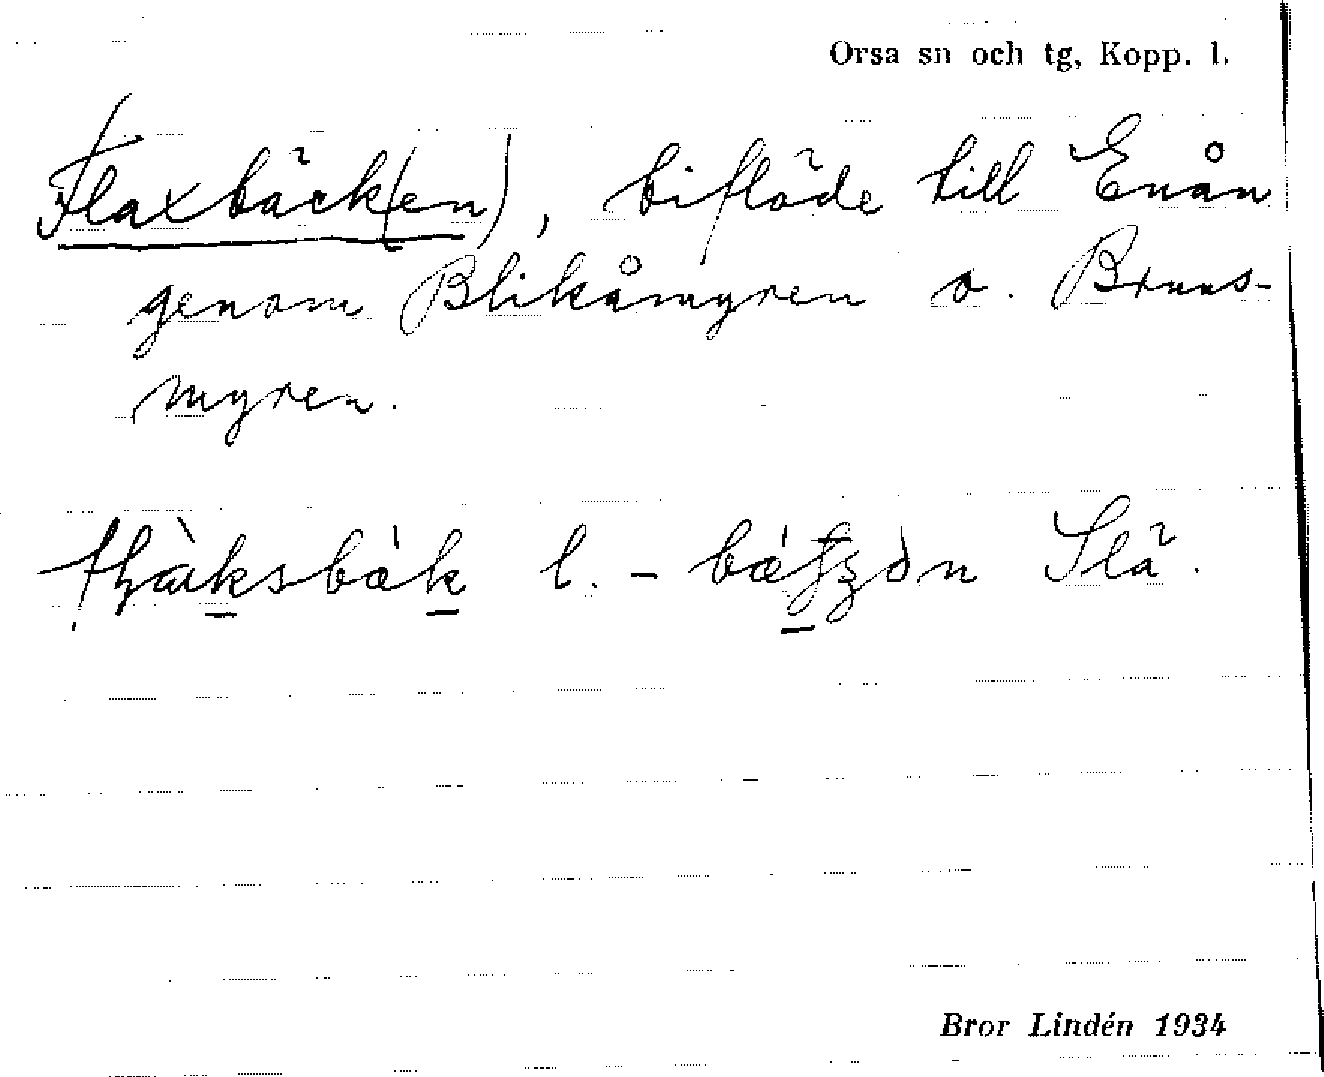 Orsa sn och tg, Kopp. l.
Flaxbäck(en), biflöde till Enån
genom Blikåmyren o. Bruns-
myren.
l. - Slä.
Bror Lindén 1934